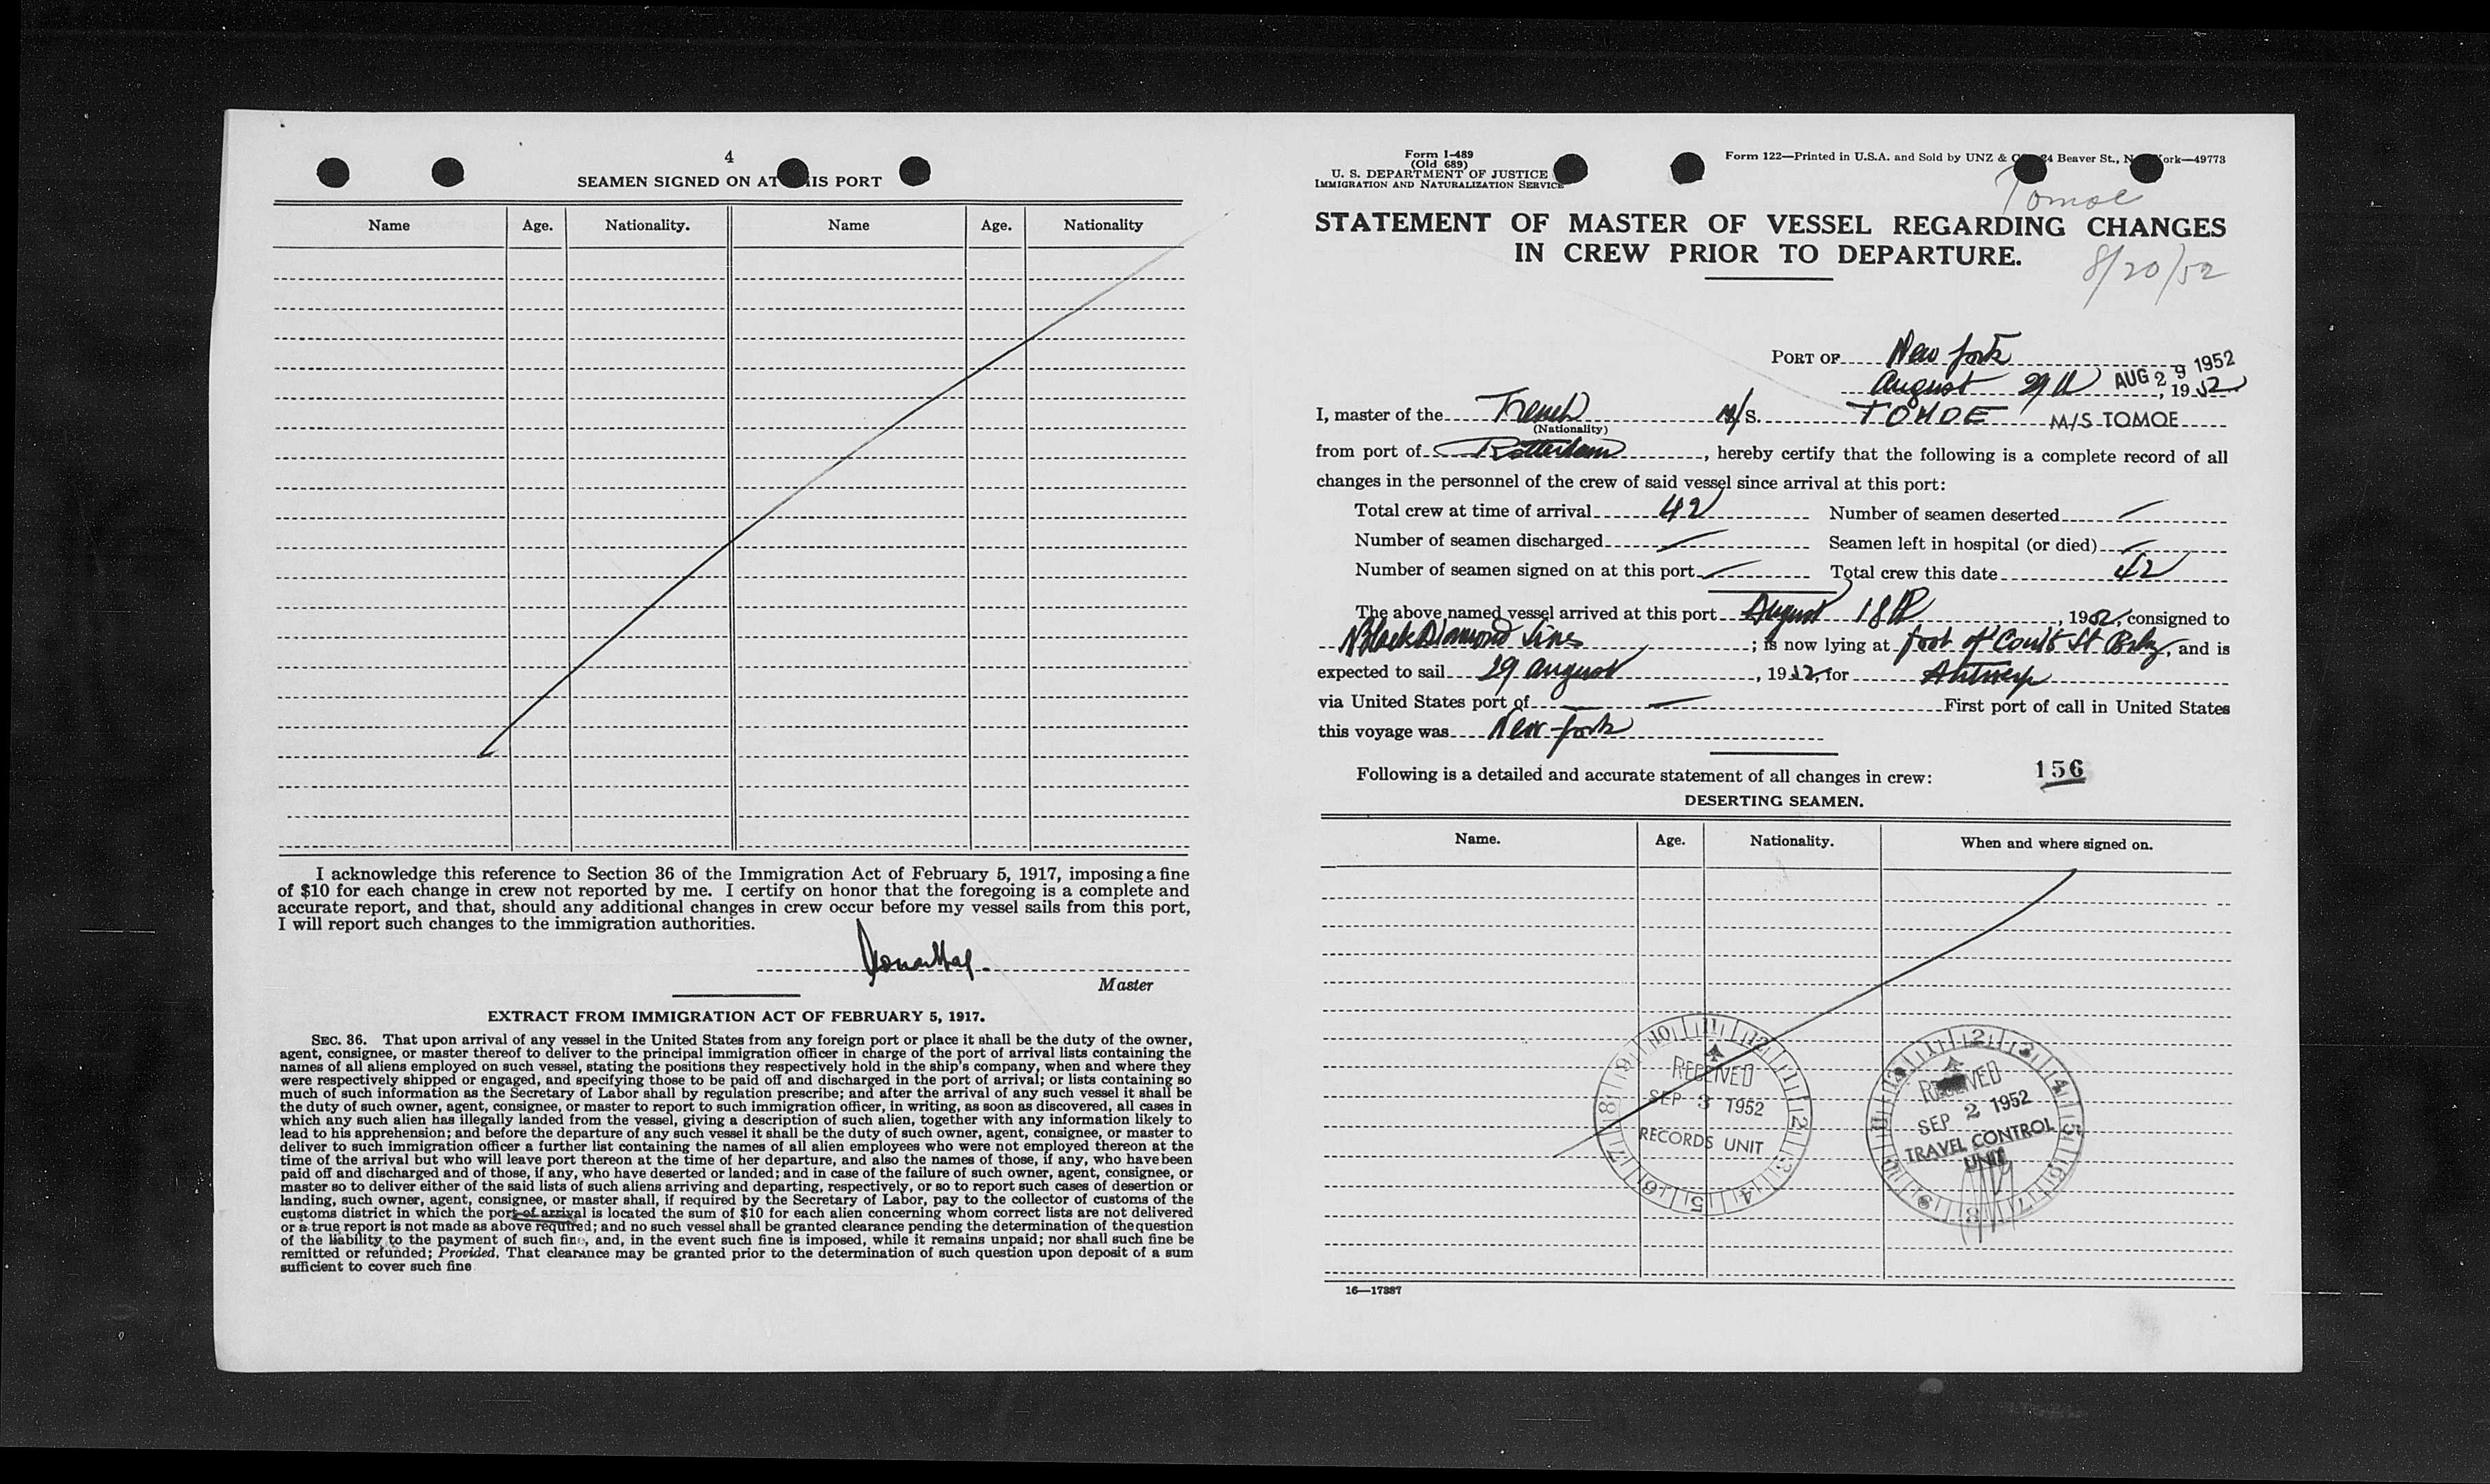 4
SEAMEN SIGNED ON AT THIS PORT
Name Age. Nationality. Name Age. Nationality
I acknowledge this reference to Section 36 of the Immigration Act of February 5, 1917, imposing a fine
of $10 for each change in crew not reported by me. I certify on honor that the foregoing is a complete and
accurate report, and that, should any additional changes in crew occur before my vessel sails from this port,
I will report such changes to the immigration authorities.
Master
EXTRACT FROM IMMIGRATION ACT OF FEBRUARY 5, 1917.
SEC. 36. That upon arrival of any vessel in the United States from any foreign port or place it shall be the duty of the owner,
agent, consignee, or master thereof to deliver to the principal immigration officer in charge of the port of arrival lists containing the
names of all aliens employed on such vessel, stating the positions they respectively hold in the ship's company, when and where they
were respectively shipped or engaged, and specifying those to be paid off and discharged in the port of arrival; or lists containing so
much of such information as the Secretary of Labor shall by regulation prescribe; and after the arrival of any such vessel it shall be
the duty of such owner, agent, consignee, or master to report to such immigration officer, in writing, as soon as discovered, all cases in
which any such alien has illegally landed from the vessel, giving a description of such alien, together with any information likely to
lead to his apprehension; and before the departure of any such vessel it shall be the duty of such owner, agent, consignee, or master to
deliver to such immigration officer a further list containing the names of all alien employees who were not employed thereon at the
time of the arrival but who will leave port thereon at the time of her departure, and also the names of those, if any, who have been
paid off and discharged and of those, if any, who have deserted or landed; and in case of the failure of such owner, agent, consignee, or
master so to deliver either of the said lists of such aliens arriving and departing, respectively, or so to report such cases of desertion or
landing, such owner, agent, consignee, or master shall, if required by the Secretary of Labor, pay to the collector of customs of the
customs district in which the port of arrival is located the sum of $10 for each alien concerning whom correct lists are not delivered
or a true report is not made as above required; and no such vessel shall be granted clearance pending the determination of the question
of the liability to the payment of such fine, and, in the event such fine is imposed, while it remains unpaid; nor shall such fine be
remitted or refunded; Provided. That clearance may be granted prior to the determination of such question upon deposit of a sum
sufficient to cover such fine
Form I-489
(Old 689)
U. S. DEPARTMENT OF JUSTICE
IMMIGRATION AND NATURALIZATION SERVICE
Form 122—Printed in U.S.A. and Sold by UNZ & Co., 24 Beaver St., New York—49773
Tomoe
STATEMENT OF MASTER OF VESSEL REGARDING CHANGES
IN CREW PRIOR TO DEPARTURE.
8/20/52
PORT OF New York
August 29th AUG 29 1952, 1952
I, master of the French M/S. TOMOE M/S TOMOE
(Nationality)
from port of Rotterdam, hereby certify that the following is a complete record of all
changes in the personnel of the crew of said vessel since arrival at this port:
Total crew at time of arrival 42 Number of seamen deserted —
Number of seamen discharged — Seamen left in hospital (or died) —
Number of seamen signed on at this port — Total crew this date 42
The above named vessel arrived at this port August 18th, 1952, consigned to
Black Diamond Lines; is now lying at foot of Court St Bkly, and is
expected to sail 29 august, 1952, for Antwerp
via United States port of — — First port of call in United States
this voyage was New York
Following is a detailed and accurate statement of all changes in crew: 156
DESERTING SEAMEN.
Name. Age. Nationality. When and where signed on.
RECEIVED
SEP 3 1952
RECORDS UNIT
RECEIVED
SEP 2 1952
TRAVEL CONTROL
UNIT
16—17387